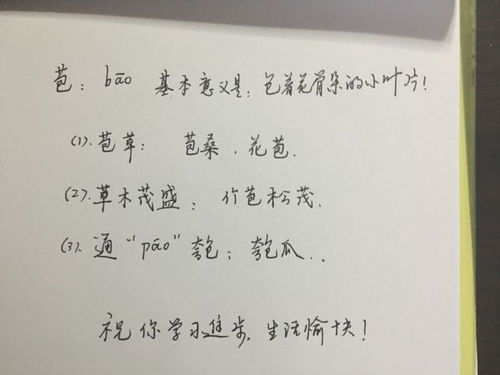 苞：bāo 基本意义是：包着花骨朵的小叶片！
(1).苞草：苞桑．花苞．
(2).草木茂盛：竹苞松茂．
(3).通“páo”匏：匏瓜．．
祝你学习进步，生活愉快！